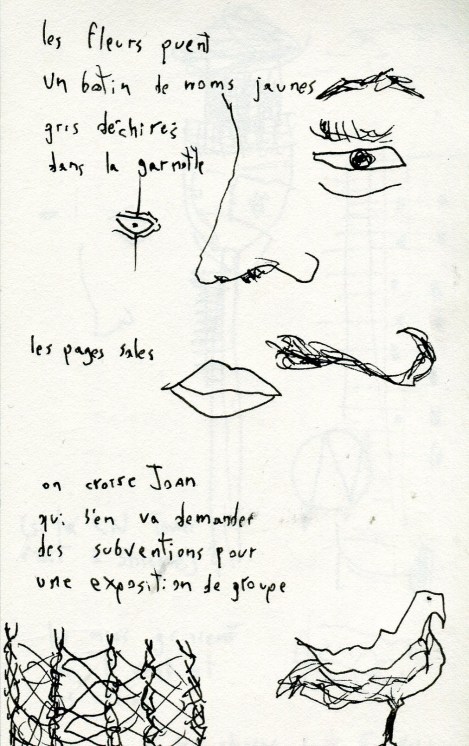 les fleurs puent
un botin de noms jaunes
gris déchirés
dans la garnotte
les pages sales
on croise JOAN
qui s'en va demander
des subventions pour
une exposition de groupe